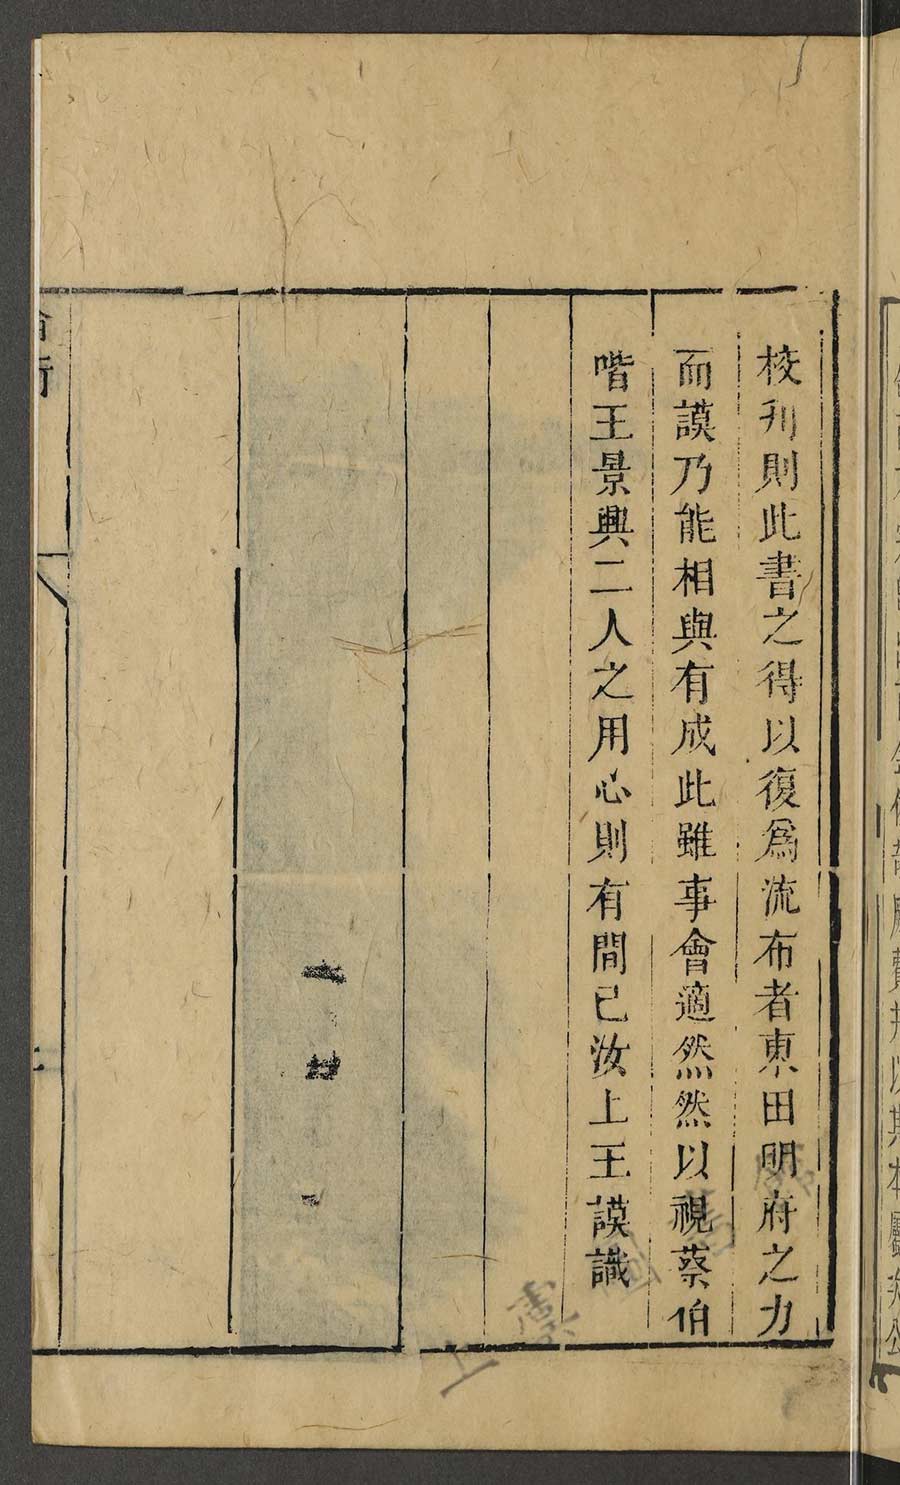 校刋則此書之得以復爲流布者東田明府之力
而謨乃能相與有成此雖事會適然然以視蔡伯
喈王景興二人之用心則有間已汝上王謨識